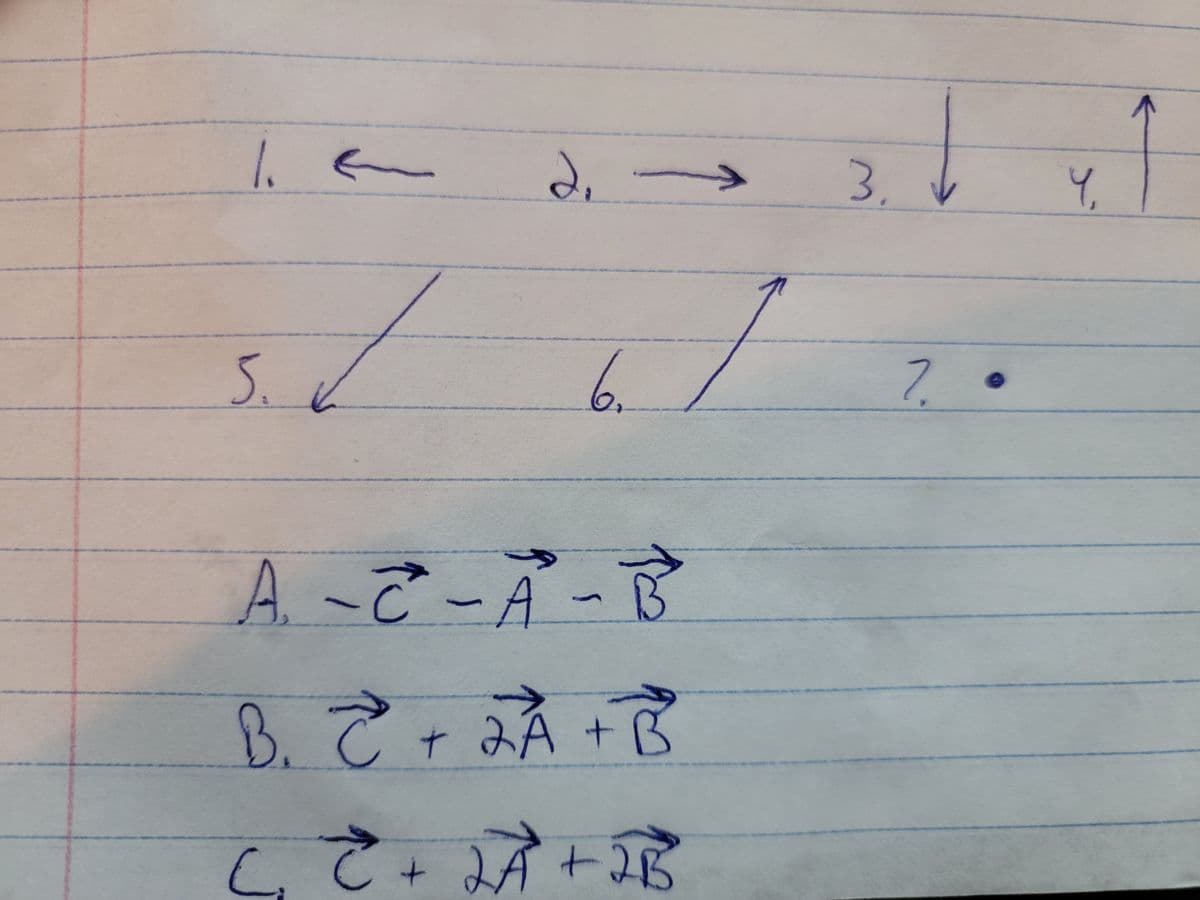 1. ← 2. → 3. ↓ 4. ↑
5. ↙ 6. ↗ 7. •
A. -C⃗ - A⃗ - B⃗
B. C⃗ + 2A⃗ + B⃗
C. C⃗ + 2A⃗ + 2B⃗